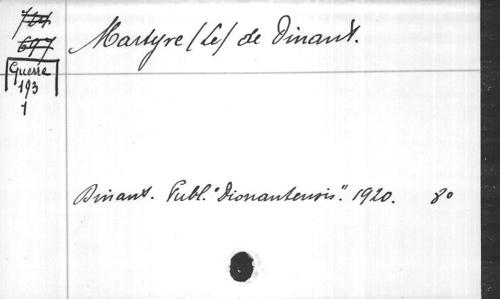 697
Guerre
193
1
Martyre (Le) de Dinant.
Dinant. Publ. "Dionantensis". 1920. 8°